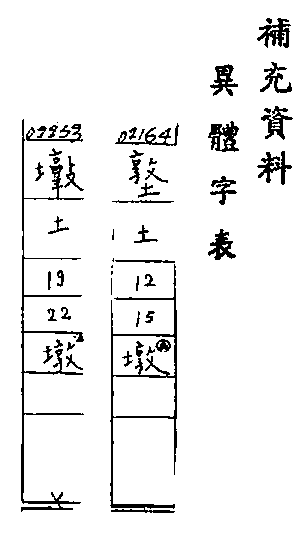 補充資料
異體字表
02164
墪
土
12
15
墩
土
19
22
墩